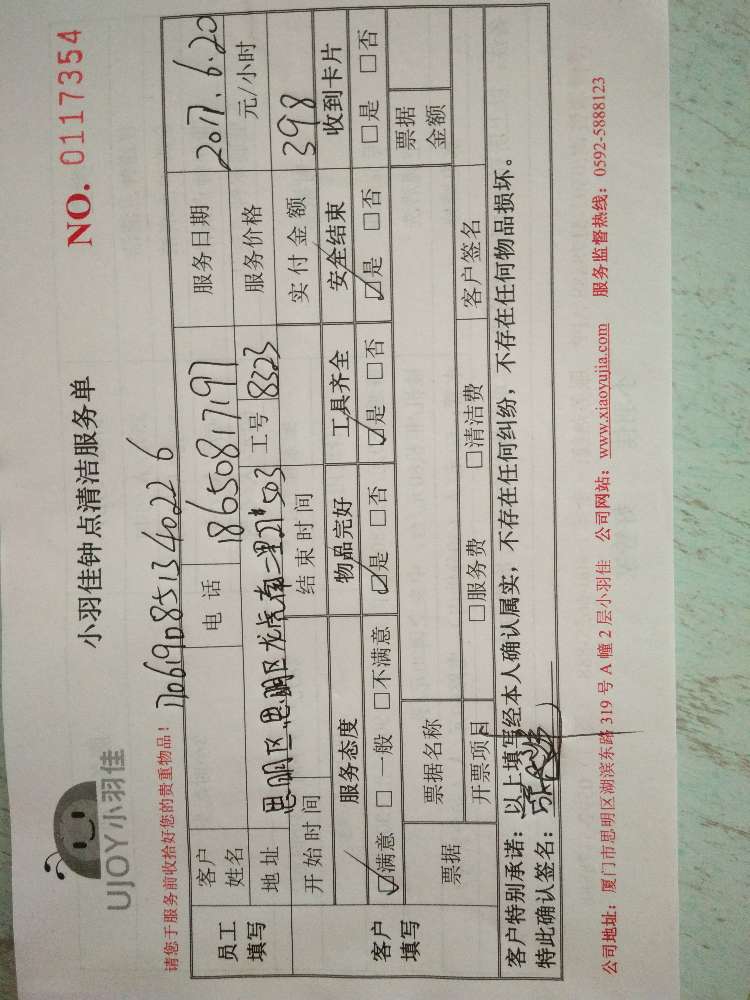 UJOY小羽佳
小羽佳钟点清洁服务单
NO. 0117354
请您于服务前收拾好您的贵重物品！
170619085134 0226
员工填写
客户姓名
电话 18650817197
服务日期 2017.6.20
地址 思明区 思明区龙虎南二里21#503
工号 8323
服务价格 元/小时
开始时间
结束时间
实付金额 398
客户填写
服务态度 物品完好 工具齐全 安全结束 收到卡片
☑满意 □一般 □不满意 ☑是 □否 ☑是 □否 ☑是 □否 □是 □否
票据
票据名称
票据金额
开票项目 □服务费 □清洁费 客户签名
客户特别承诺：以上填写经本人确认属实，不存在任何纠纷，不存在任何物品损坏。
特此确认签名：
公司地址：厦门市思明区湖滨东路319号A幢2层小羽佳 公司网站：www.xiaoyujia.com 服务监督热线：0592-5888123